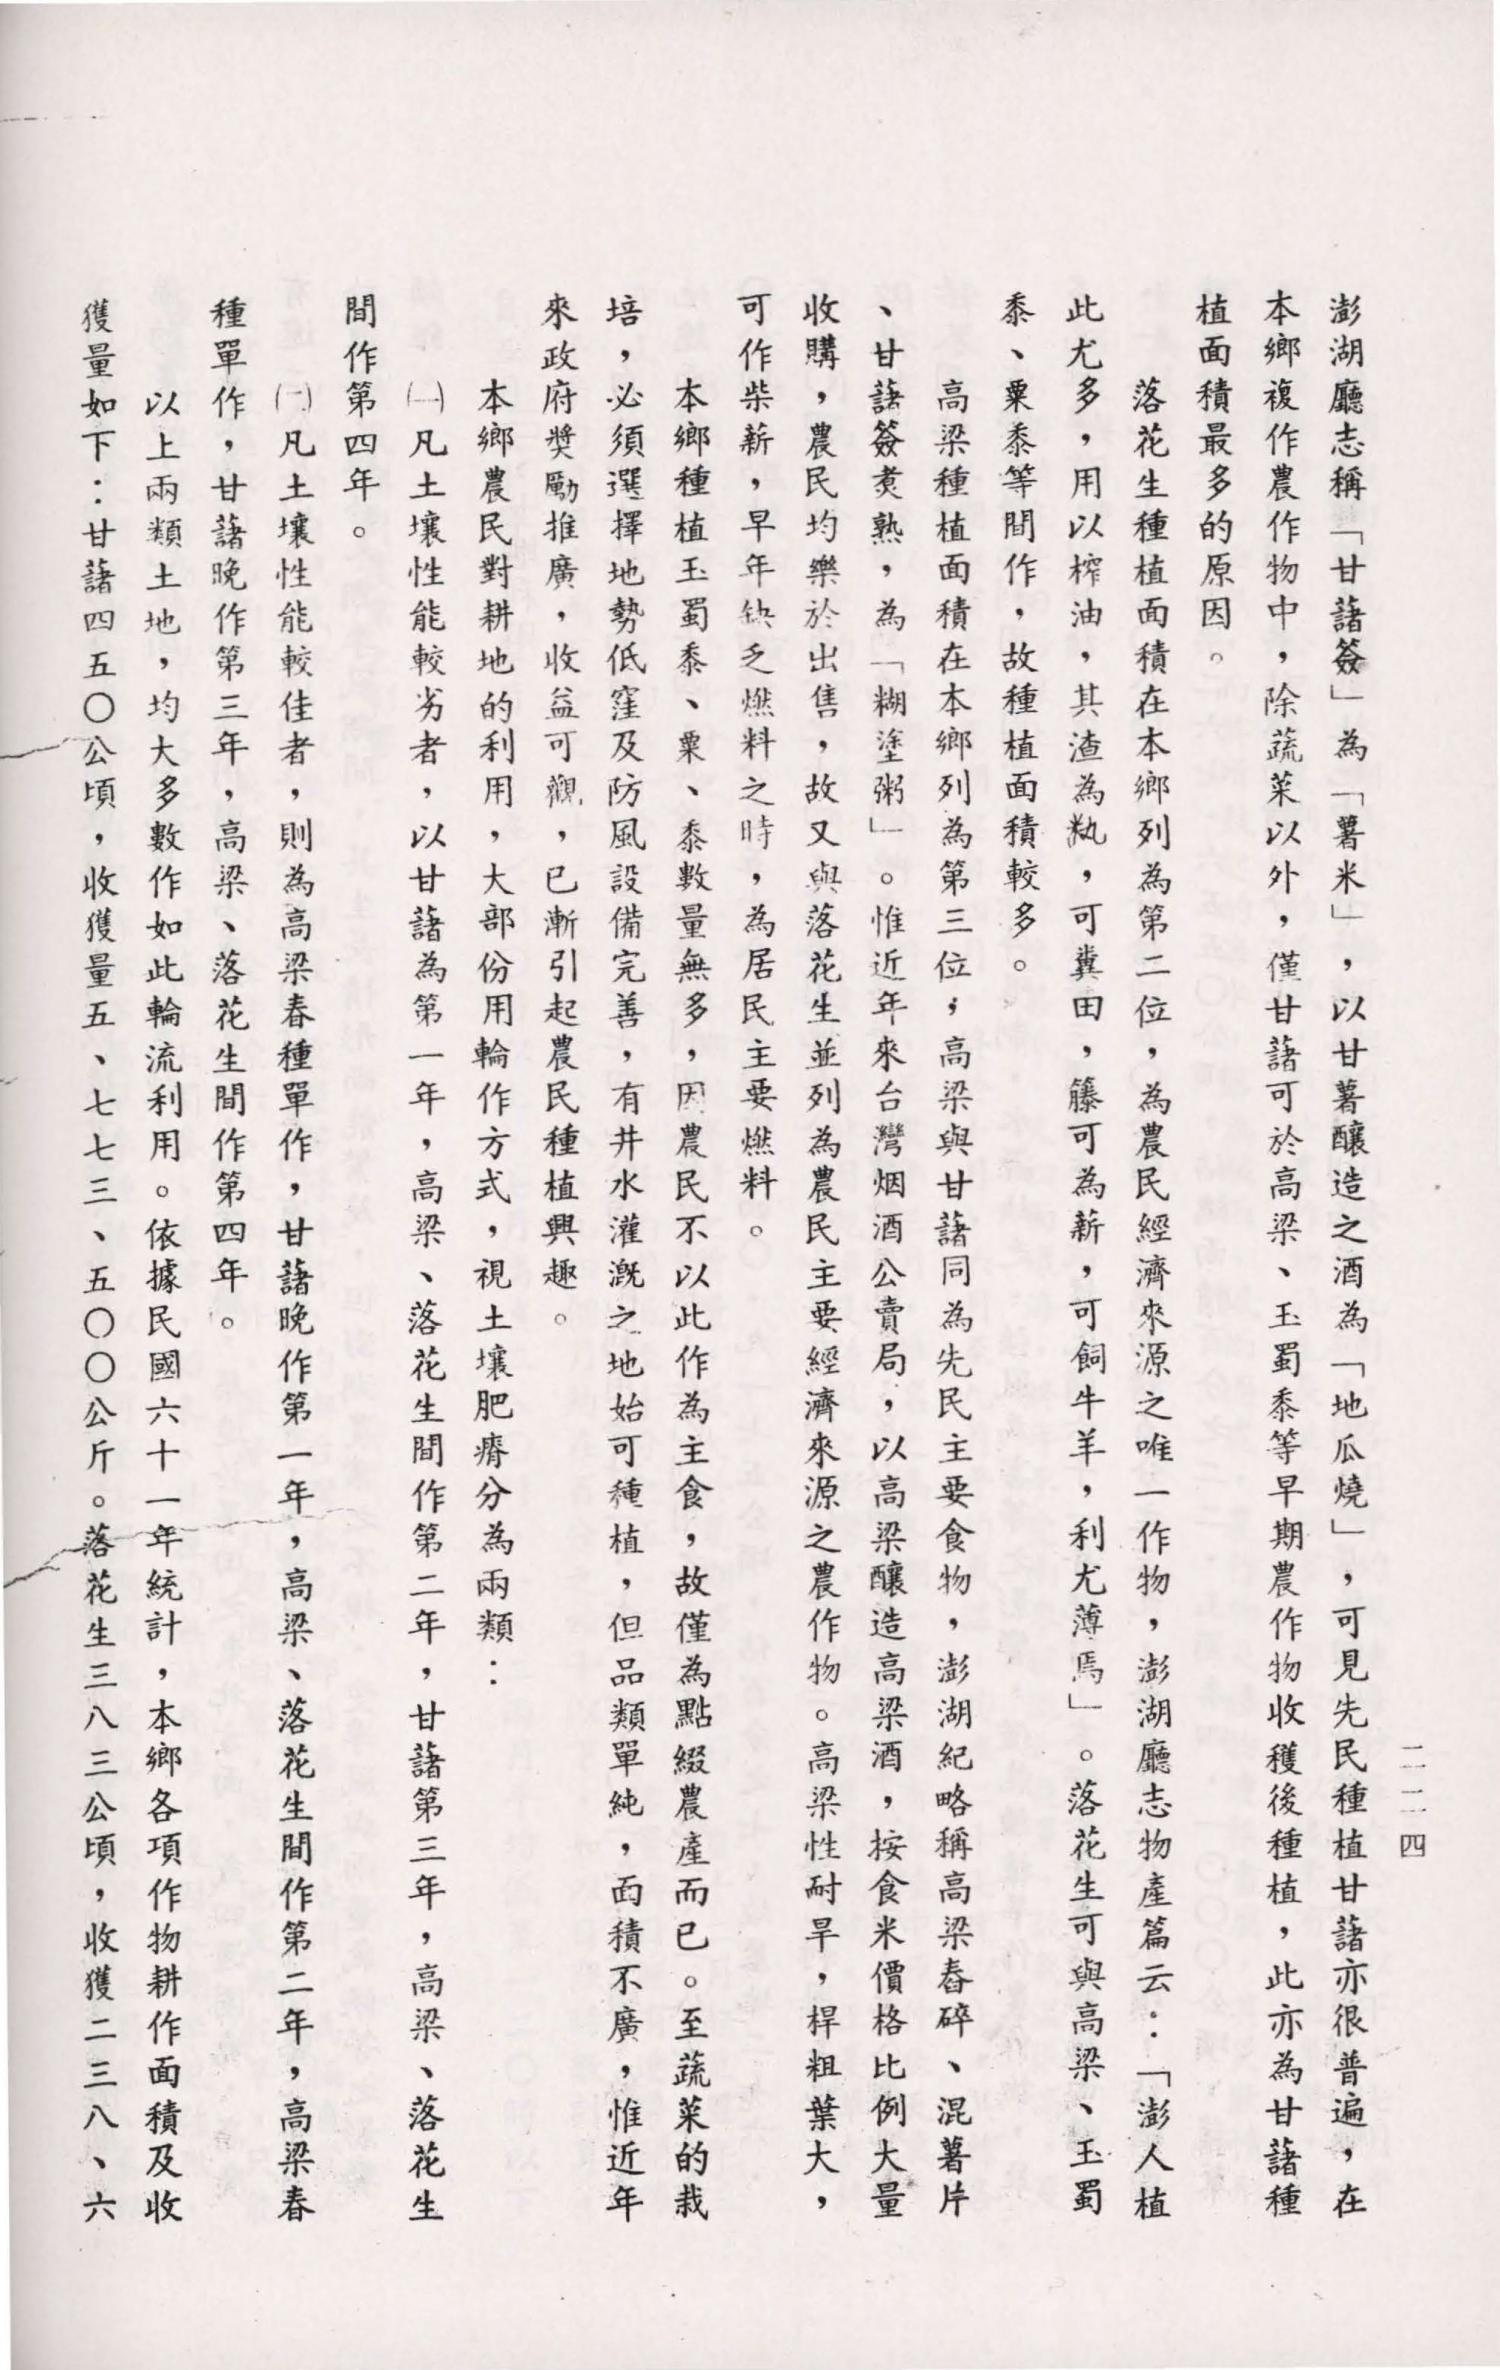 二一二四
澎湖廳志稱「甘藷簽」為「薯米」，以甘薯釀造之酒為「地瓜燒」，可見先民種植甘藷亦很普遍，在
本鄉複作農作物中，除蔬菜以外，僅甘藷可於高梁、玉蜀黍等早期農作物收穫後種植，此亦為甘藷種
植面積最多的原因。
落花生種植面積在本鄉列為第二位，為農民經濟來源之唯一作物，澎湖廳志物產篇云：「澎人植
此尤多，用以榨油，其渣為籸，可糞田，籐可為薪，可飼牛羊，利尤薄焉」。落花生可與高梁、玉蜀
黍、粟黍等間作，故種植面積較多。
高梁種植面積在本鄉列為第三位，高梁與甘藷同為先民主要食物，澎湖紀略稱高梁舂碎、混薯片
、甘藷簽煑熟，為「糊塗粥」。惟近年來台灣烟酒公賣局，以高梁釀造高梁酒，按食米價格比例大量
收購，農民均樂於出售，故又與落花生並列為農民主要經濟來源之農作物。高梁性耐旱，桿粗葉大，
可作柴薪，早年缺乏燃料之時，為居民主要燃料。
本鄉種植玉蜀黍、粟、黍數量無多，因農民不以此作為主食，故僅為點綴農產而已。至蔬菜的栽
培，必須選擇地勢低窪及防風設備完善，有井水灌溉之地始可種植，但品類單純，面積不廣，惟近年
來政府獎勵推廣，收益可觀，已漸引起農民種植興趣。
本鄉農民對耕地的利用，大部份用輪作方式，視土壤肥瘠分為兩類：
㈠凡土壤性能較劣者，以甘藷為第一年，高梁、落花生間作第二年，甘藷第三年，高梁、落花生
間作第四年。
㈡凡土壤性能較佳者，則為高梁春種單作，甘藷晚作第一年，高梁、落花生間作第二年，高梁春
種單作，甘藷晚作第三年，高梁、落花生間作第四年。
以上兩類土地，均大多數作如此輪流利用。依據民國六十一年統計，本鄉各項作物耕作面積及收
獲量如下：甘藷四五〇公頃，收獲量五、七七三、五〇〇公斤。落花生三八三公頃，收獲二三八、六